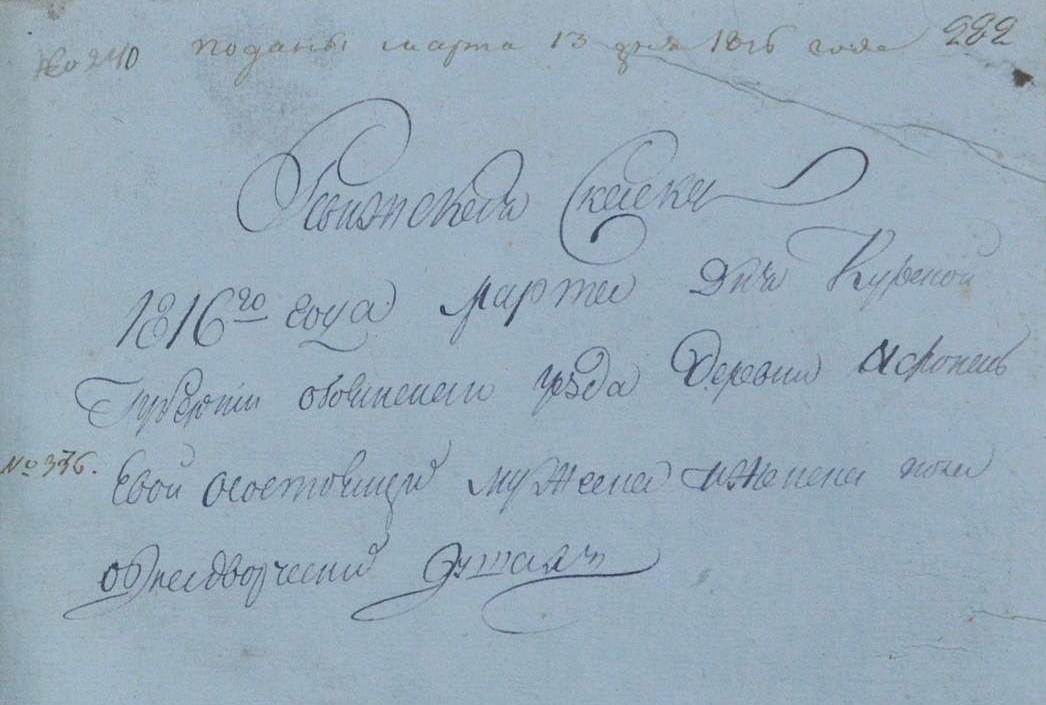 № 240 поданы марта 13 дня 1816 года 282
Ревижская Скаска
1816го года марта Дня Курской
Губернии обоянскаго уезда Деревни Афонась
№ 336. евой осостоящей мужеска иженска пола
однодворческих душах